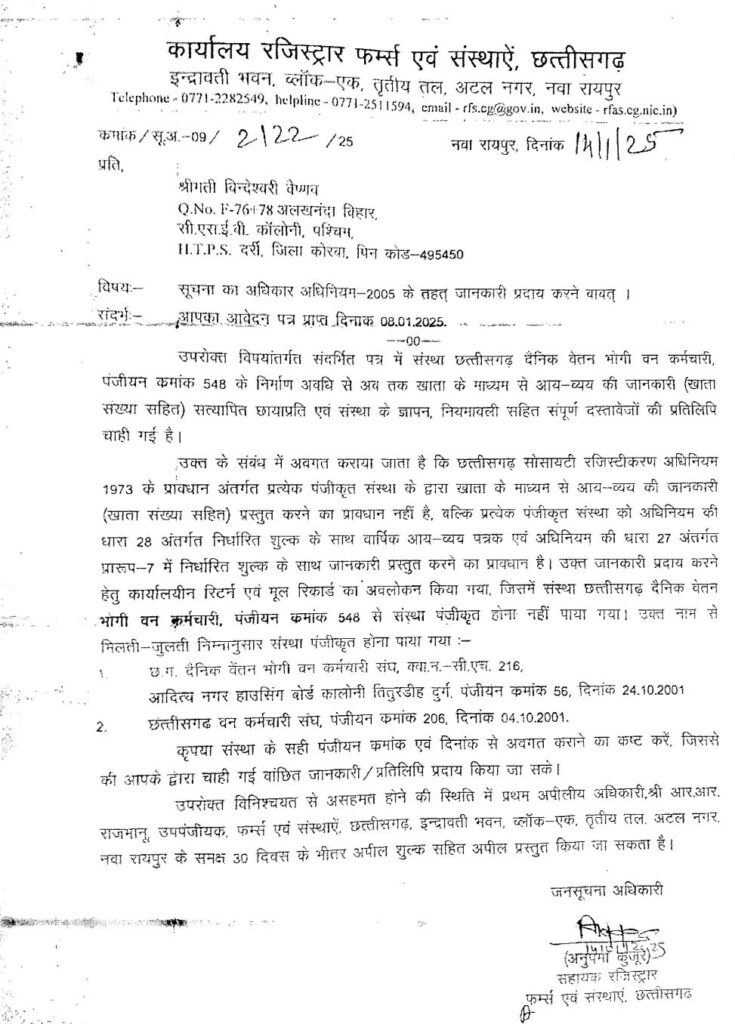 कार्यालय रजिस्ट्रार फर्म्स एवं संस्थाऐं, छत्तीसगढ़
इन्द्रावती भवन, ब्लॉक-एक, तृतीय तल, अटल नगर, नवा रायपुर
Telephone - 0771-2282549, helpline - 0771-2511594, email - rfs.cg@gov.in, website - rfas.cg.nic.in)
कमांक/सू.अ.-09/ 2122 /25 नवा रायपुर, दिनांक 14/1/25
प्रति,
श्रीमती बिन्देश्वरी वैष्णव
Q.No. F-76+78 अलखनंदा विहार,
सी.एस.ई.बी. कॉलोनी, पश्चिम,
H.T.P.S. दर्री, जिला कोरबा, पिन कोड-495450
विषयः- सूचना का अधिकार अधिनियम-2005 के तहत् जानकारी प्रदाय करने बावत् ।
संदर्भः- आपका आवेदन पत्र प्राप्त दिनांक 08.01.2025.
---00---
उपरोक्त विषयांतर्गत संदर्भित पत्र में संस्था छत्तीसगढ़ दैनिक वेतन भोगी वन कर्मचारी,
पंजीयन कमांक 548 के निर्माण अवधि से अब तक खाता के माध्यम से आय-व्यय की जानकारी (खाता
संख्या सहित) सत्यापित छायाप्रति एवं संस्था के ज्ञापन, नियमावली सहित संपूर्ण दस्तावेजों की प्रतिलिपि
चाही गई है।
उक्त के संबंध में अवगत कराया जाता है कि छत्तीसगढ़ सोसायटी रजिस्टीकरण अधिनियम
1973 के प्रावधान अंतर्गत प्रत्येक पंजीकृत संस्था के द्वारा खाता के माध्यम से आय-व्यय की जानकारी
(खाता संख्या सहित) प्रस्तुत करने का प्रावधान नहीं है, बल्कि प्रत्येक पंजीकृत संस्था को अधिनियम की
धारा 28 अंतर्गत निर्धारित शुल्क के साथ वार्षिक आय-व्यय पत्रक एवं अधिनियम की धारा 27 अंतर्गत
प्रारूप-7 में निर्धारित शुल्क के साथ जानकारी प्रस्तुत करने का प्रावधान है। उक्त जानकारी प्रदाय करने
हेतु कार्यालयीन रिटर्न एवं मूल रिकार्ड का अवलोकन किया गया, जिसमें संस्था छत्तीसगढ़ दैनिक वेतन
भोगी वन कर्मचारी, पंजीयन कमांक 548 से संस्था पंजीकृत होना नहीं पाया गया। उक्त नाम से
मिलती-जुलती निम्नानुसार संस्था पंजीकृत होना पाया गया :-
1. छ.ग. दैनिक वेंतन भोगी वन कर्मचारी संघ, क्वा.न.-सी.एच. 216,
आदित्य नगर हाउसिंग बोर्ड कालोनी तितुरडीह दुर्ग, पंजीयन कमांक 56, दिनांक 24.10.2001
2. छत्तीसगढ वन कर्मचारी संघ, पंजीयन कमांक 206, दिनांक 04.10.2001.
कृपया संस्था के सही पंजीयन कमांक एवं दिनांक से अवगत कराने का कष्ट करें, जिससे
की आपके द्वारा चाही गई वांछित जानकारी/प्रतिलिपि प्रदाय किया जा सके।
उपरोक्त विनिश्चयत से असहमत होने की स्थिति में प्रथम अपीलीय अधिकारी,श्री आर.आर.
राजभानू, उपपंजीयक, फर्म्स एवं संस्थाऐं, छत्तीसगढ़, इन्द्रावती भवन, ब्लॉक-एक, तृतीय तल, अटल नगर,
नवा रायपुर के समक्ष 30 दिवस के भीतर अपील शुल्क सहित अपील प्रस्तुत किया जा सकता है।
जनसूचना अधिकारी
(अनुपमा कुजूर)
सहायक रजिस्ट्रार
फर्म्स एवं संस्थाऐं, छत्तीसगढ